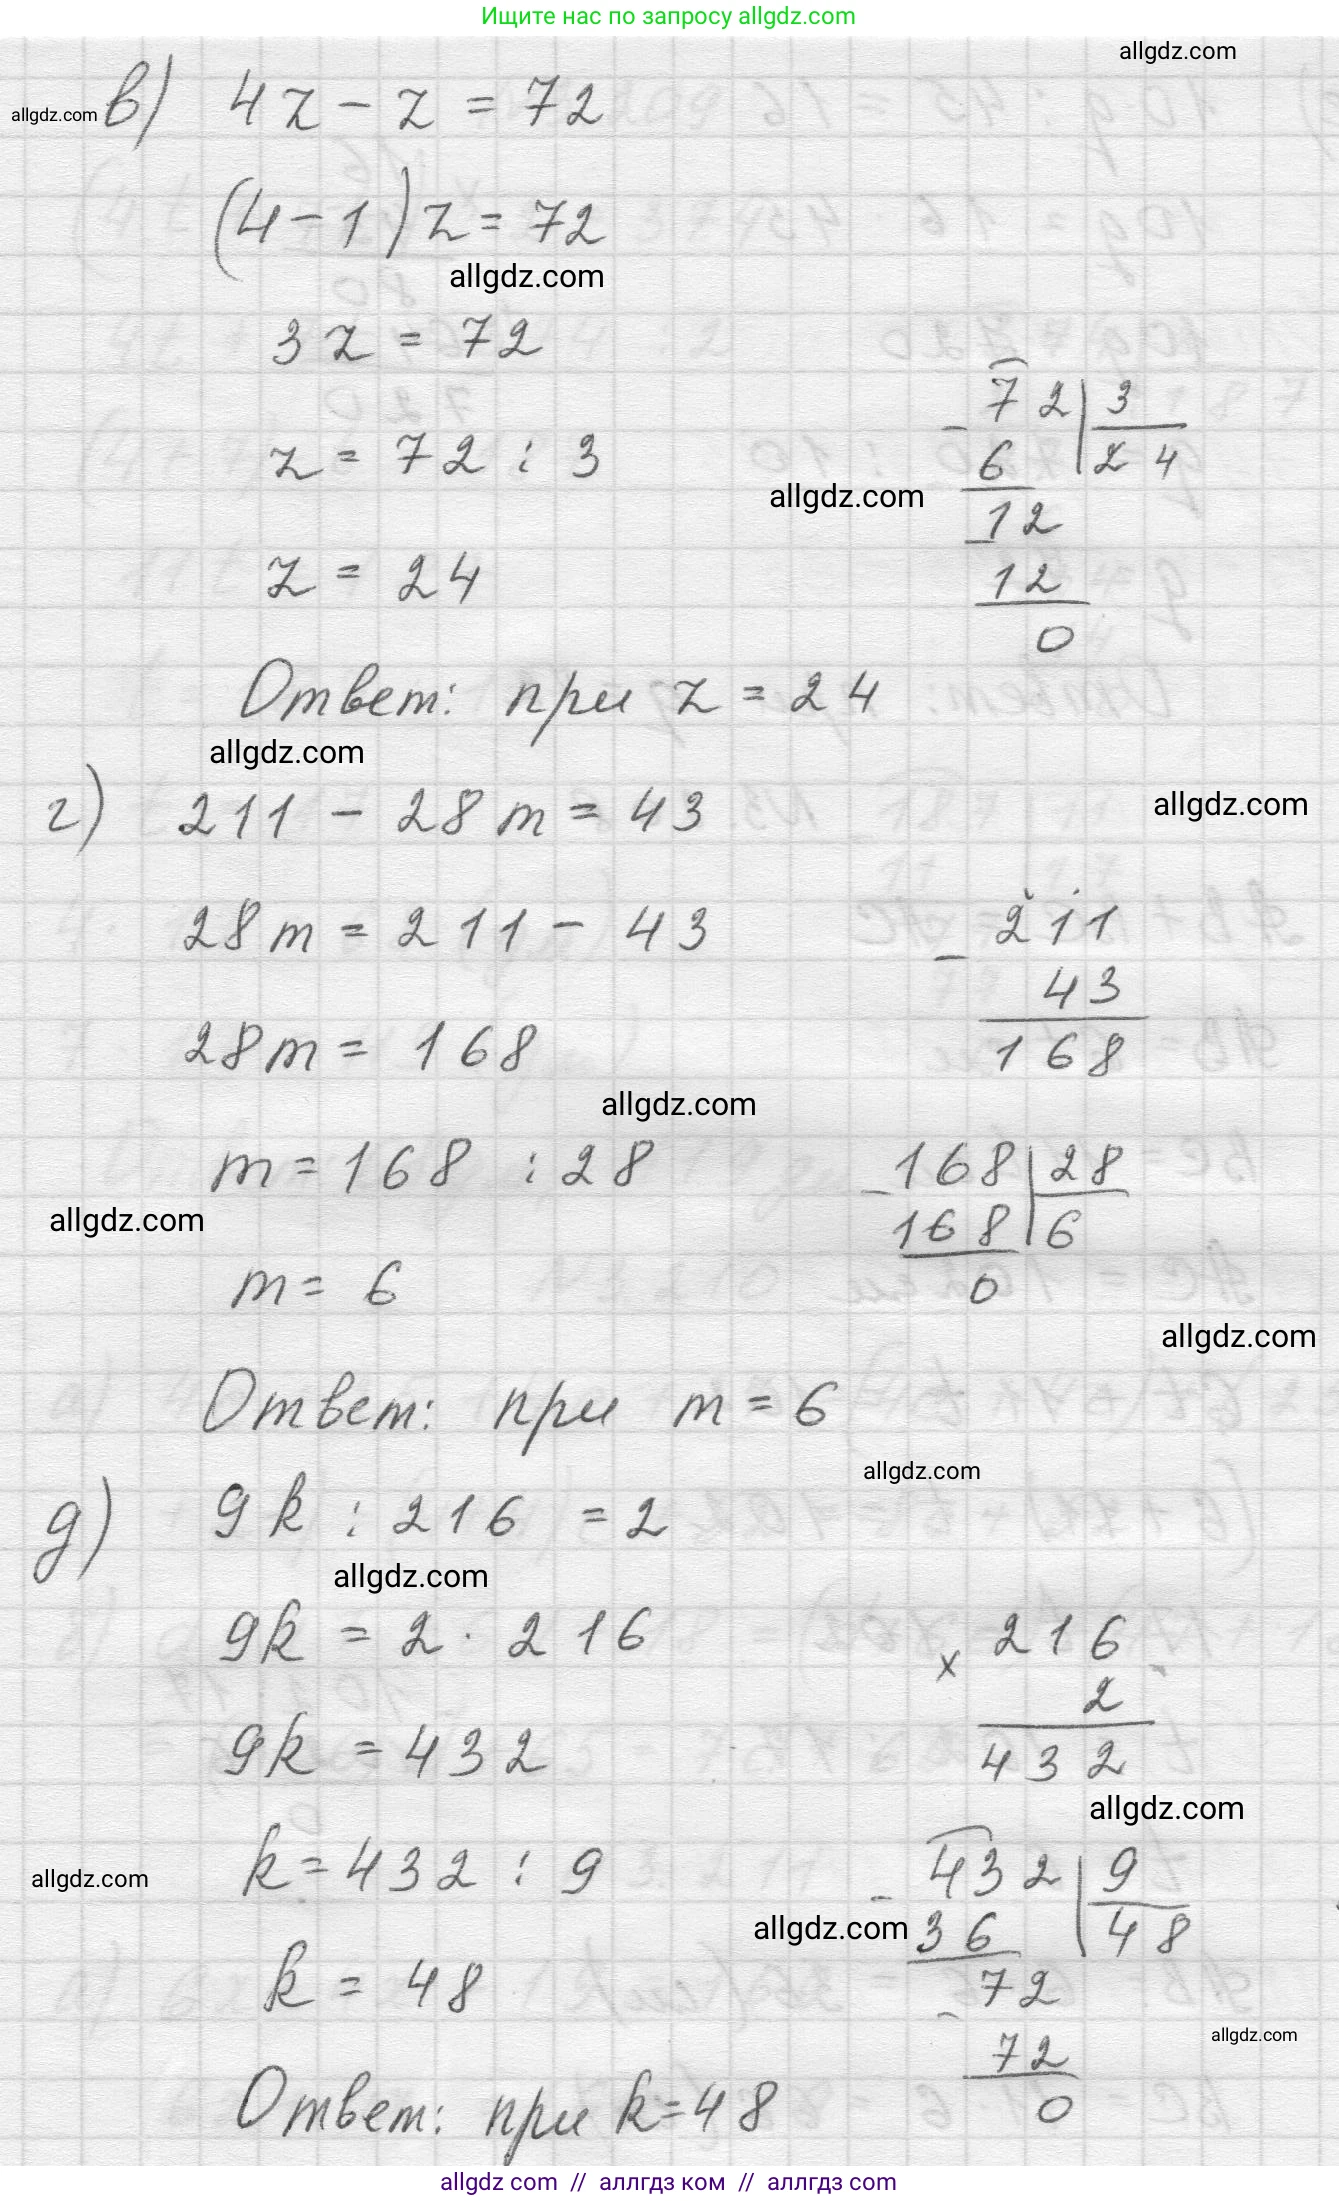 Ищите нас по запросу allgdz.com
allgdz.com
allgdz.com
в) 4z - z = 72
(4-1)z = 72
allgdz.com
3z = 72
z = 72 : 3
72 | 3
6 | 24
allgdz.com
12
12
0
z = 24
Ответ: при z = 24
allgdz.com
allgdz.com
г) 211 - 28m = 43
28m = 211 - 43
- 211
43
168
28m = 168
allgdz.com
m = 168 : 28
- 168 | 28
168 | 6
0
allgdz.com
m = 6
allgdz.com
Ответ: при m = 6
allgdz.com
д) 9k : 216 = 2
allgdz.com
9k = 2 · 216
x 216
2
432
9k = 432
allgdz.com
k = 432 : 9
- 432 | 9
36 | 48
- 72
72
0
allgdz.com
allgdz.com
k = 48
allgdz.com
Ответ: при k = 48
allgdz com // аллгдз ком // allgdz com